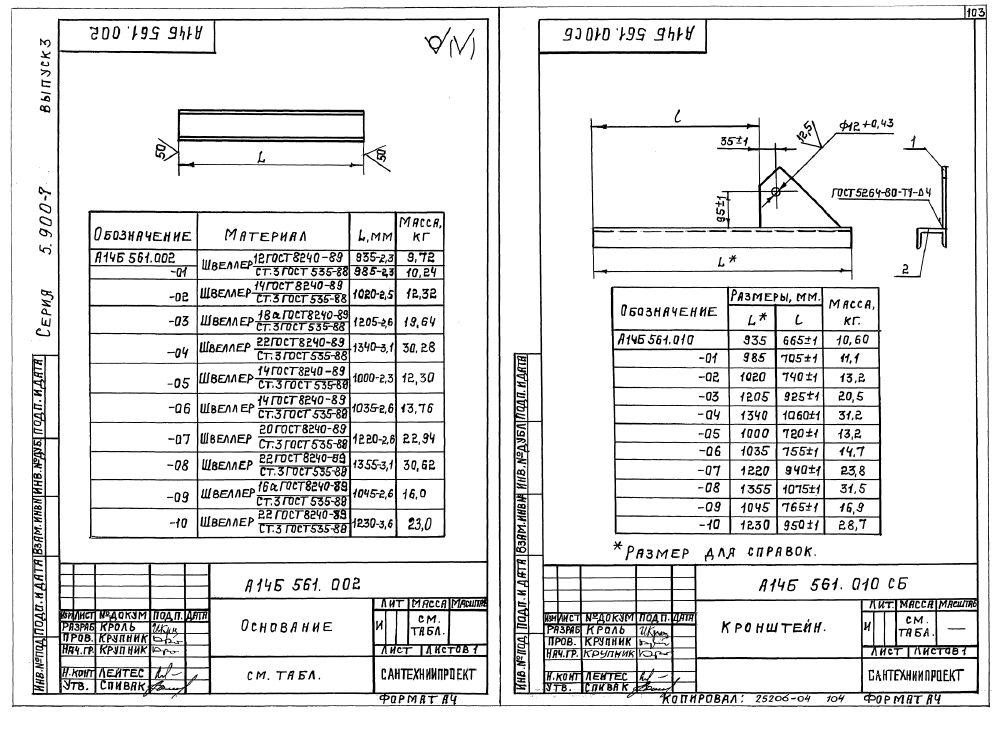 103
А14Б 561. 002
Серия 5.900-9 выпуск 3
50 L 50
Обозначение Материал L, мм Масса, кг
А14Б 561.002 Швеллер 12 ГОСТ 8240-89 935-2,3 9,72
-01 Ст.3 ГОСТ 535-88 985-2,3 10,24
-02 Швеллер 14 ГОСТ 8240-89 Ст.3 ГОСТ 535-88 1020-2,5 12,32
-03 Швеллер 18а ГОСТ 8240-89 Ст.3 ГОСТ 535-88 1205-2,6 19,64
-04 Швеллер 22 ГОСТ 8240-89 Ст.3 ГОСТ 535-88 1340-3,1 30,28
-05 Швеллер 14 ГОСТ 8240-89 Ст.3 ГОСТ 535-88 1000-2,3 12,30
-06 Швеллер 14 ГОСТ 8240-89 Ст.3 ГОСТ 535-88 1035-2,6 13,76
-07 Швеллер 20 ГОСТ 8240-89 Ст.3 ГОСТ 535-88 1220-2,6 22,94
-08 Швеллер 22 ГОСТ 8240-89 Ст.3 ГОСТ 535-88 1355-3,1 30,62
-09 Швеллер 16а ГОСТ 8240-89 Ст.3 ГОСТ 535-88 1045-2,6 16,0
-10 Швеллер 22 ГОСТ 8240-89 Ст.3 ГОСТ 535-88 1230-3,6 23,0
А14Б 561. 002
Изм Лист № докум Подп. Дата
Разраб Кроль
Пров. Крупник
Нач.гр. Крупник
Н.конт Лейтес
Утв. Спивак
Основание
См. табл.
Лит Масса Масштаб
И См. табл.
Лист Листов 1
САНТЕХНИИПРОЕКТ
Формат А4
Инв.№ подп. Подп. и дата Взам.инв№ Инв.№ дубл Подп. и дата
А14Б 561.010 СБ
l
35±1
12,5
Ф12+0,43
1
95±1
ГОСТ 5264-80-Т1-△4
L*
2
Обозначение Размеры, мм. Масса, кг.
L* l
А14Б 561.010 935 665±1 10,60
-01 985 705±1 11,1
-02 1020 740±1 13,2
-03 1205 925±1 20,5
-04 1340 1060±1 31,2
-05 1000 720±1 13,2
-06 1035 755±1 14,7
-07 1220 940±1 23,8
-08 1355 1075±1 31,5
-09 1045 765±1 16,9
-10 1230 950±1 28,7
* Размер для справок.
А14Б 561. 010 СБ
Изм Лист № докум Подп. Дата
Разраб Кроль
Пров. Крупник
Нач.гр. Крупник
Н.конт Лейтес
Утв. Спивак
Кронштейн.
Лит. Масса Масштаб
И См. табл. —
Лист Листов 1
САНТЕХНИИПРОЕКТ
Копировал: 25206-04 104 Формат А4
Инв.№ подп Подп. и дата Взам.инв№ Инв.№ дубл Подп. и дата